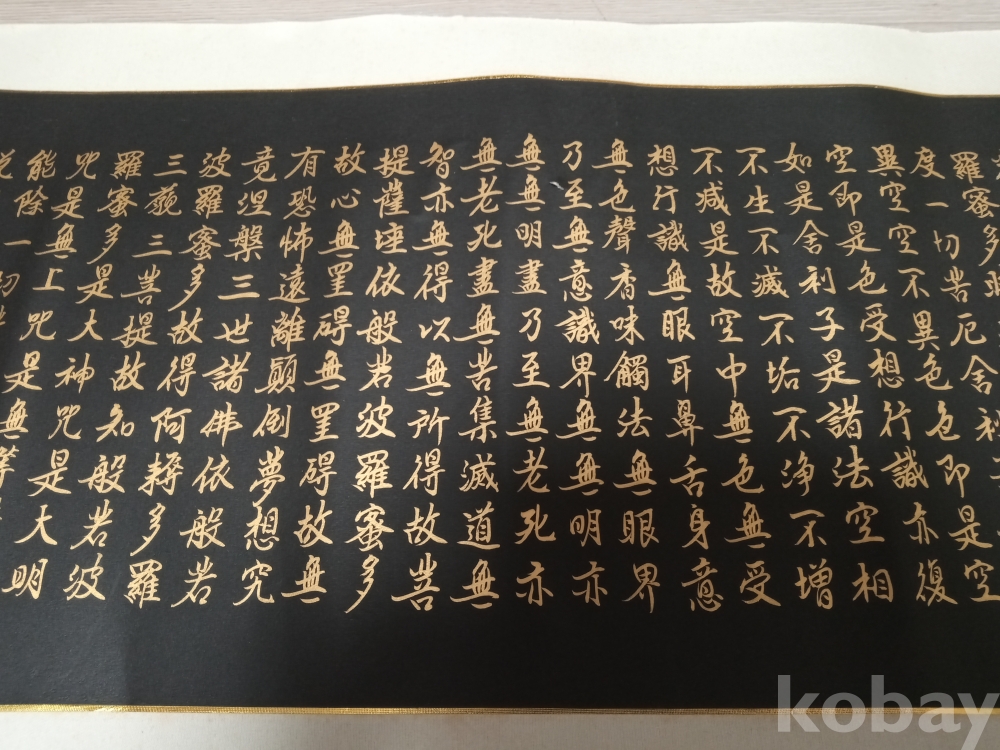 羅蜜多時
度一切苦厄舍利
異空空不異色色即是空
空即是色受想行識亦復
如是舍利子是諸法空相
不生不滅不垢不淨不增
不減是故空中無色無受
想行識無眼耳鼻舌身意
無色聲香味觸法無眼界
乃至無意識界無無明亦
無無明盡乃至無老死亦
無老死盡無苦集滅道無
智亦無得以無所得故菩
提薩埵依般若波羅蜜多
故心無罣碍無罣碍故無
有恐怖遠離顛倒夢想究
竟涅槃三世諸佛依般若
波羅蜜多故得阿耨多羅
三藐三菩提故知般若波
羅蜜多是大神咒是大明
咒是無上咒是無等
能除一切
kobay